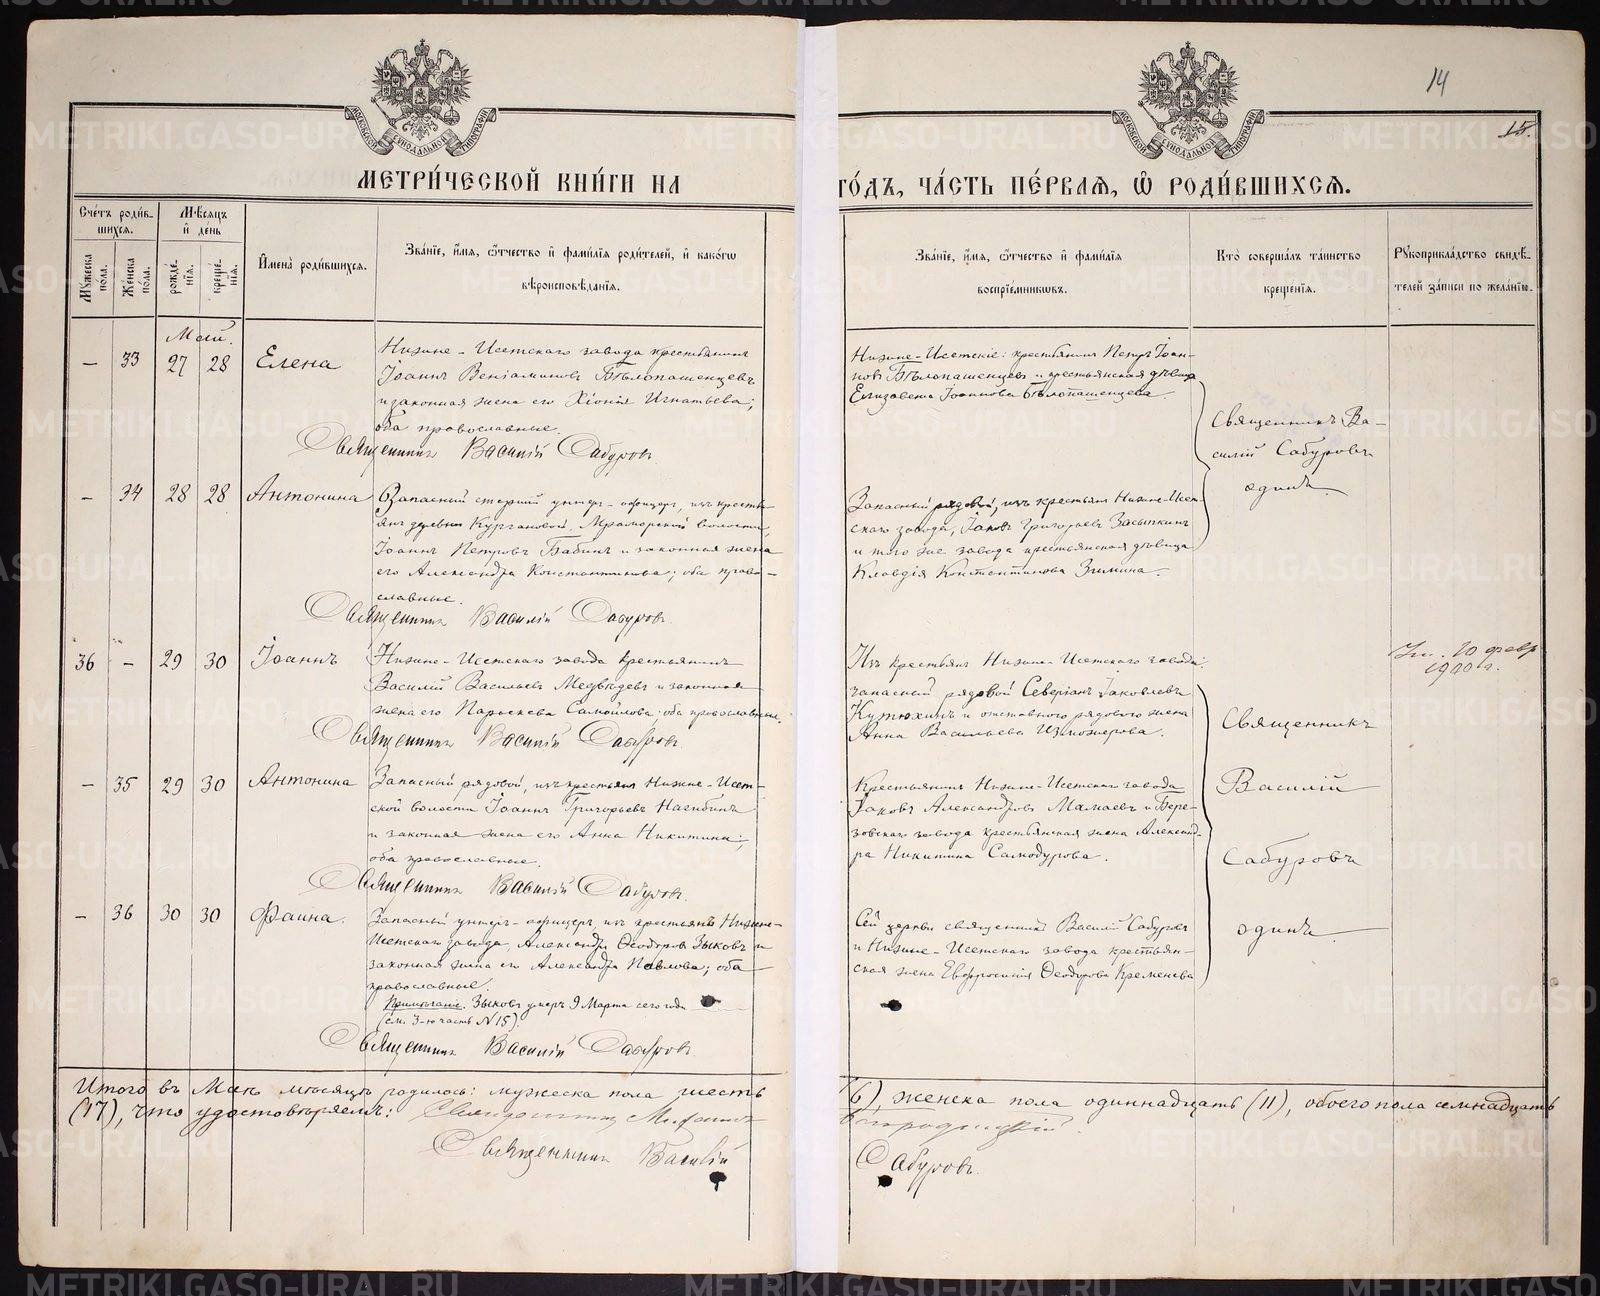 14
15.
МОСКОВСКОЙ СѴНОДАЛЬНОЙ ТИПОГРАФІИ
МОСКОВСКОЙ СѴНОДАЛЬНОЙ ТИПОГРАФІИ
МЕТРИ́ЧЕСКОЙ КНИ́ГИ НА
ГО́ДЪ, ЧА́СТЬ ПЕ́РВАЯ, Ѽ РОДИ́ВШИХСЯ.
Сче́тъ роди́в-
шихся.
Мѣ́сяцъ
и҆ де́нь
Му́жеска по́ла.
Же́нска по́ла.
рожде́-
нїя.
креще́-
нїя.
И҆мена̀ роди́вшихся.
Зва́нїе, и҆́мя, ѻ҆́тчество и҆ фами́лїя роди́телей, и҆ како́гѡ
вѣроисповѣ́данїя.
Зва́нїе, и҆́мя, ѻ҆́тчество и҆ фами́лїя
воспрїе́мниковъ.
Кто̀ соверша́лъ та́инство
креще́нїя.
Рꙋкоприкла́дство свидѣ́-
телей за́писи по жела́нїю.
Май.
— 33 27 28 Елена
Нижне-Исетскаго завода крестьянинъ
Іоаннъ Веніаминовъ Бѣлопашенцевъ
и законная жена его Хіонія Игнатьева;
оба православные.
Священникъ Василій Сабуровъ
Нижне-Исетскіе: крестьянинъ Петръ Іоан-
новъ Бѣлопашенцевъ и крестьянская дѣвица
Елизавета Іоаннова Бѣлопашенцева.
Священникъ Ва-
силій Сабуровъ
одинъ
— 34 28 28 Антонина
Запасный старшій унтеръ-офицеръ, изъ кресть-
янъ деревни Кургановой, Мраморской волости,
Іоаннъ Петровъ Бабинъ и законная жена
его Александра Константинова; оба право-
славные.
Священникъ Василій Сабуровъ.
Запасный рядовой, изъ крестьянъ Нижне-Исет-
скаго завода, Іаковъ Григорьевъ Засыпкинъ
и того же завода крестьянская дѣвица
Клавдія Константинова Зимина.
36 — 29 30 Іоаннъ
Нижне-Исетскаго завода крестьянинъ
Василій Васильевъ Медвѣдевъ и законная
жена его Параскева Самойлова; оба православные.
Священникъ Василій Сабуровъ.
Изъ крестьянъ Нижне-Исетскаго завода,
запасный рядовой Северіанъ Іаковлевъ
Кутюхинъ и отставного рядового жена
Анна Васильева Изможерова.
10 февр
1920 г.
— 35 29 30 Антонина
Запасный рядовой, изъ крестьянъ Нижне-Исет-
ской волости Іоаннъ Григорьевъ Нагибинъ
и законная жена его Анна Никитина;
оба православные.
Священникъ Василій Сабуровъ.
Крестьянинъ Нижне-Исетскаго завода
Іаковъ Александровъ Мамаевъ и Бере-
зовскаго завода крестьянская жена Александ-
ра Никитина Самодурова.
Священникъ
Василій
Сабуровъ
одинъ.
— 36 30 30 Фаина.
Запасный унтеръ-офицеръ, изъ крестьянъ Нижне-
Исетскаго завода, Александръ Ѳеодоровъ Зыковъ и
законная жена его Александра Павлова; оба
православные.
Примѣчаніе. Зыковъ умеръ 9 Марта сего года
(см. 3-ю часть N 15).
Священникъ Василій Сабуровъ.
Сей церкви священникъ Василій Сабуровъ
и Нижне-Исетскаго завода крестьян-
ская жена Евфросинія Ѳеодорова Кременева
Итого въ Маѣ мѣсяцѣ родилось: мужеска пола шесть
(6), женска пола одиннадцать (11), обоего пола семнадцать
(17), что удостовѣряемъ: Священникъ
Священникъ Василій
Сабуровъ.
METRIKI.GASO-URAL.RU